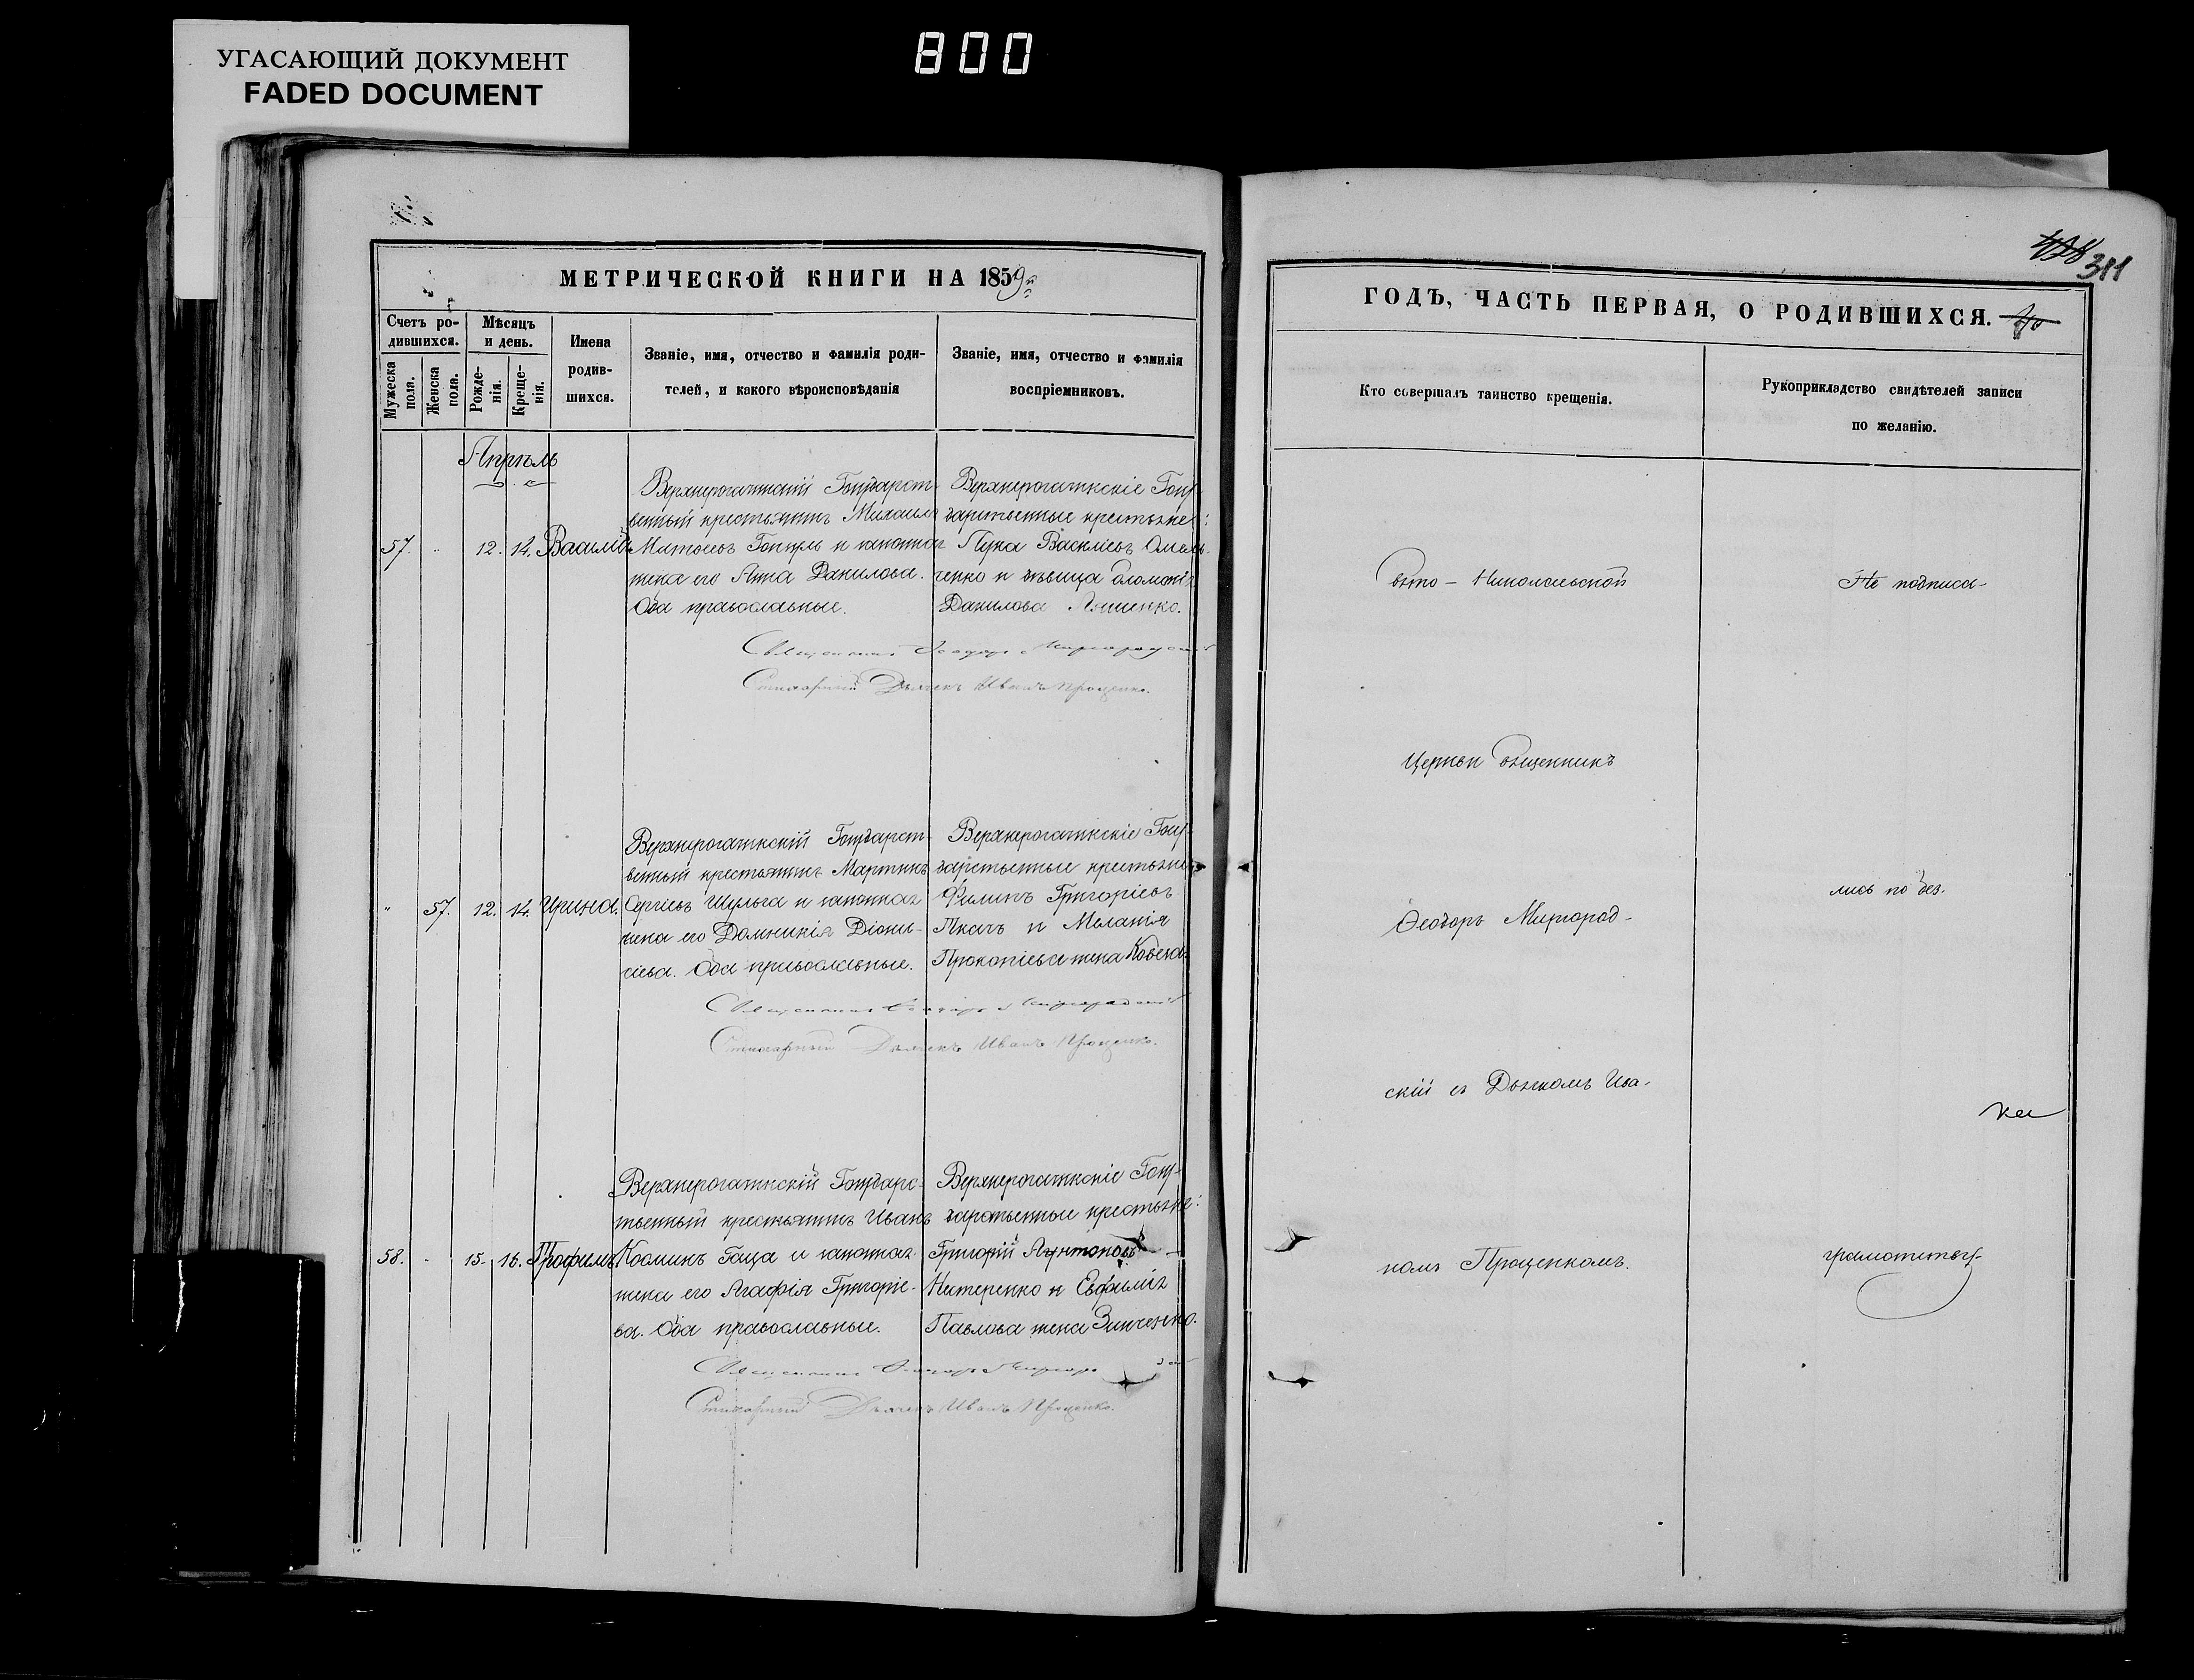 УГАСАЮЩИЙ ДОКУМЕНТ
FADED DOCUMENT
800
МЕТРИЧЕСКОЙ КНИГИ НА 1859й
Счетъ ро-
дившихся.
Мужеска
пола.
Женска
пола.
Мѣсяцъ
и день.
Рожде-
нія.
Креще-
нія.
Имена
родив-
шихся.
Званіе, имя, отчество и фамилія роди-
телей, и какого вѣроисповѣданія
Званіе, имя, отчество и фамилія
воспріемниковъ.
Апрѣль
57. 12. 14. Василій
Верхнерогачикскій Государст-
венный крестьянинъ Михаилъ
Матѳеевъ и законная
жена его Анна Данилова.
Оба православные.
Верхнерогачикскіе Госу-
дарственные крестьяне:
Лука Василіевъ Омель-
ченко и дѣвица Соломонія
Данилова
Священникъ Ѳеодоръ Миргородскій
Стихарный Дьячекъ Иванъ Проценко.
57. 12. 14. Ирина.
Верхнерогачикскій Государст-
венный крестьянинъ Мартинъ
Сергіевъ Шульга и законная
жена его Домникія Діони-
сіева. Оба православные.
Верхнерогачикскіе Госу-
дарственные крестьяне
Филипъ Григоріевъ
Ткачъ и Меланія
Прокопіева жена
Священникъ Ѳеодоръ Миргородскій
Стихарный Дьячекъ Иванъ Проценко.
58. 15. 16. Трофимъ
Верхнерогачикскій Государс-
твенный крестьянинъ Иванъ
Косминъ Гаца и законная
жена его Агафія Григоріе-
ва. Оба православные.
Верхнерогачикскіе Госу-
дарственные крестьяне:
Григорій Антоновъ
Нитеренко и Евфимія
Павлова жена Зинченко.
Священникъ Ѳеодоръ
Стихарный Дьячекъ Иванъ Проценко.
311
ГОДЪ, ЧАСТЬ ПЕРВАЯ, О РОДИВШИХСЯ.
Кто совершалъ таинство крещенія.
Рукоприкладство свидѣтелей записи
по желанію.
Свято-Николаевской
Церкви Священникъ
Ѳеодоръ Миргород-
скій съ Дьячкомъ Ива-
номъ Проценкомъ.
Не подписа-
лись по без-
грамотству.